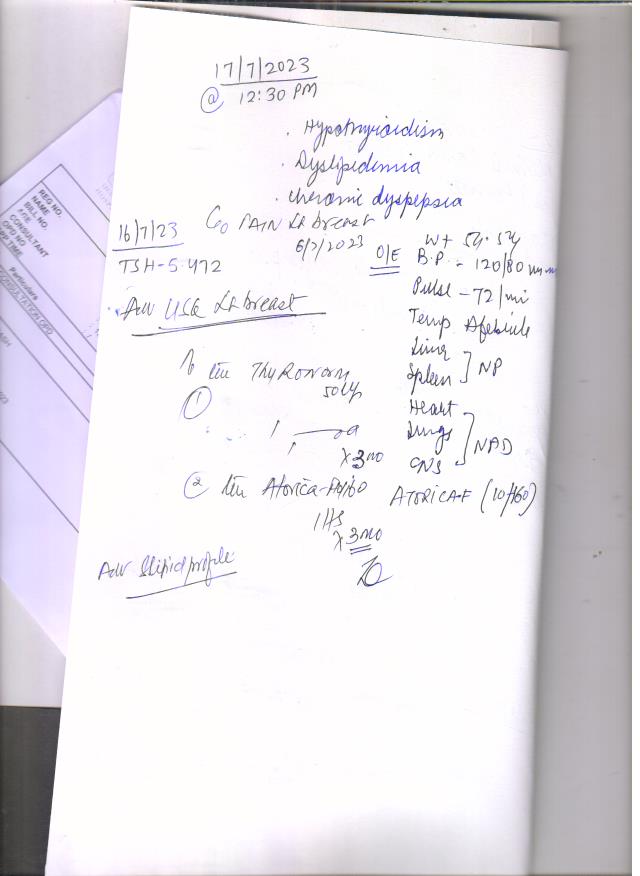 17/7/2023
@ 12:30 PM
· Hypothyrioidism
· Dyslipidemia
· Cheronic dyspepsia
C/o PAIN Lt breast
6/7/2023
16/7/23
TSH-5.472
Adv USG Lt breast
O/E Wt 54.54
B.P. - 120/80 mm
Pulse - 72/mi
Temp Afebrile
Liver
Spleen ] NP
Heart
Lungs
CNS ] NAD
① Thyronorm
50
1
x 3 mo
② Atorica-
ATORICA-F (10/160)
1 HS
x 3 mo
Adv S lipid profile
REG NO.
NAME
BILL NO.
CONSULTANT
Particulars
CONSULTATION OPD